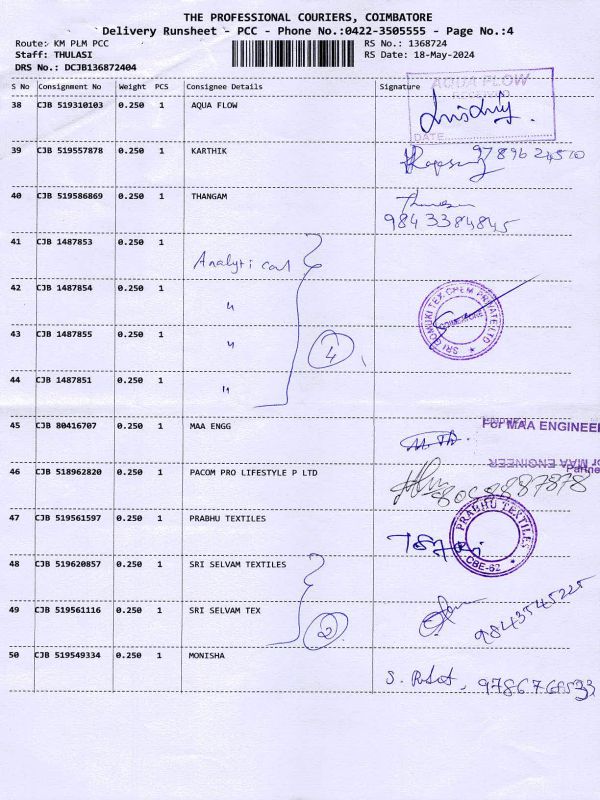 THE PROFESSIONAL COURIERS, COIMBATORE
Delivery Runsheet - PCC - Phone No.:0422-3505555 - Page No.:4
Route: KM PLM PCC RS No.: 1368724
Staff: THULASI RS Date: 18-May-2024
DRS No.: DCJB136872404
S No Consignment No Weight PCS Consignee Details Signature
38 CJB 519310103 0.250 1 AQUA FLOW
AQUA FLOW
DATE
39 CJB 519557878 0.250 1 KARTHIK
40 CJB 519586869 0.250 1 THANGAM
9843384845
41 CJB 1487853 0.250 1
Analyti cal
42 CJB 1487854 0.250 1 "
SRI GOMUKI TEX CHEM PRIVATE LTD
COIMBATORE
43 CJB 1487855 0.250 1 " 4
44 CJB 1487851 0.250 1 "
45 CJB 80416707 0.250 1 MAA ENGG
For MAA ENGINEER
For MAA ENGINEER
Partne
46 CJB 518962820 0.250 1 PACOM PRO LIFESTYLE P LTD
47 CJB 519561597 0.250 1 PRABHU TEXTILES
PRABHU TEXTILES
CBE-62
48 CJB 519620857 0.250 1 SRI SELVAM TEXTILES
49 CJB 519561116 0.250 1 SRI SELVAM TEX 2
9843545225
50 CJB 519549334 0.250 1 MONISHA